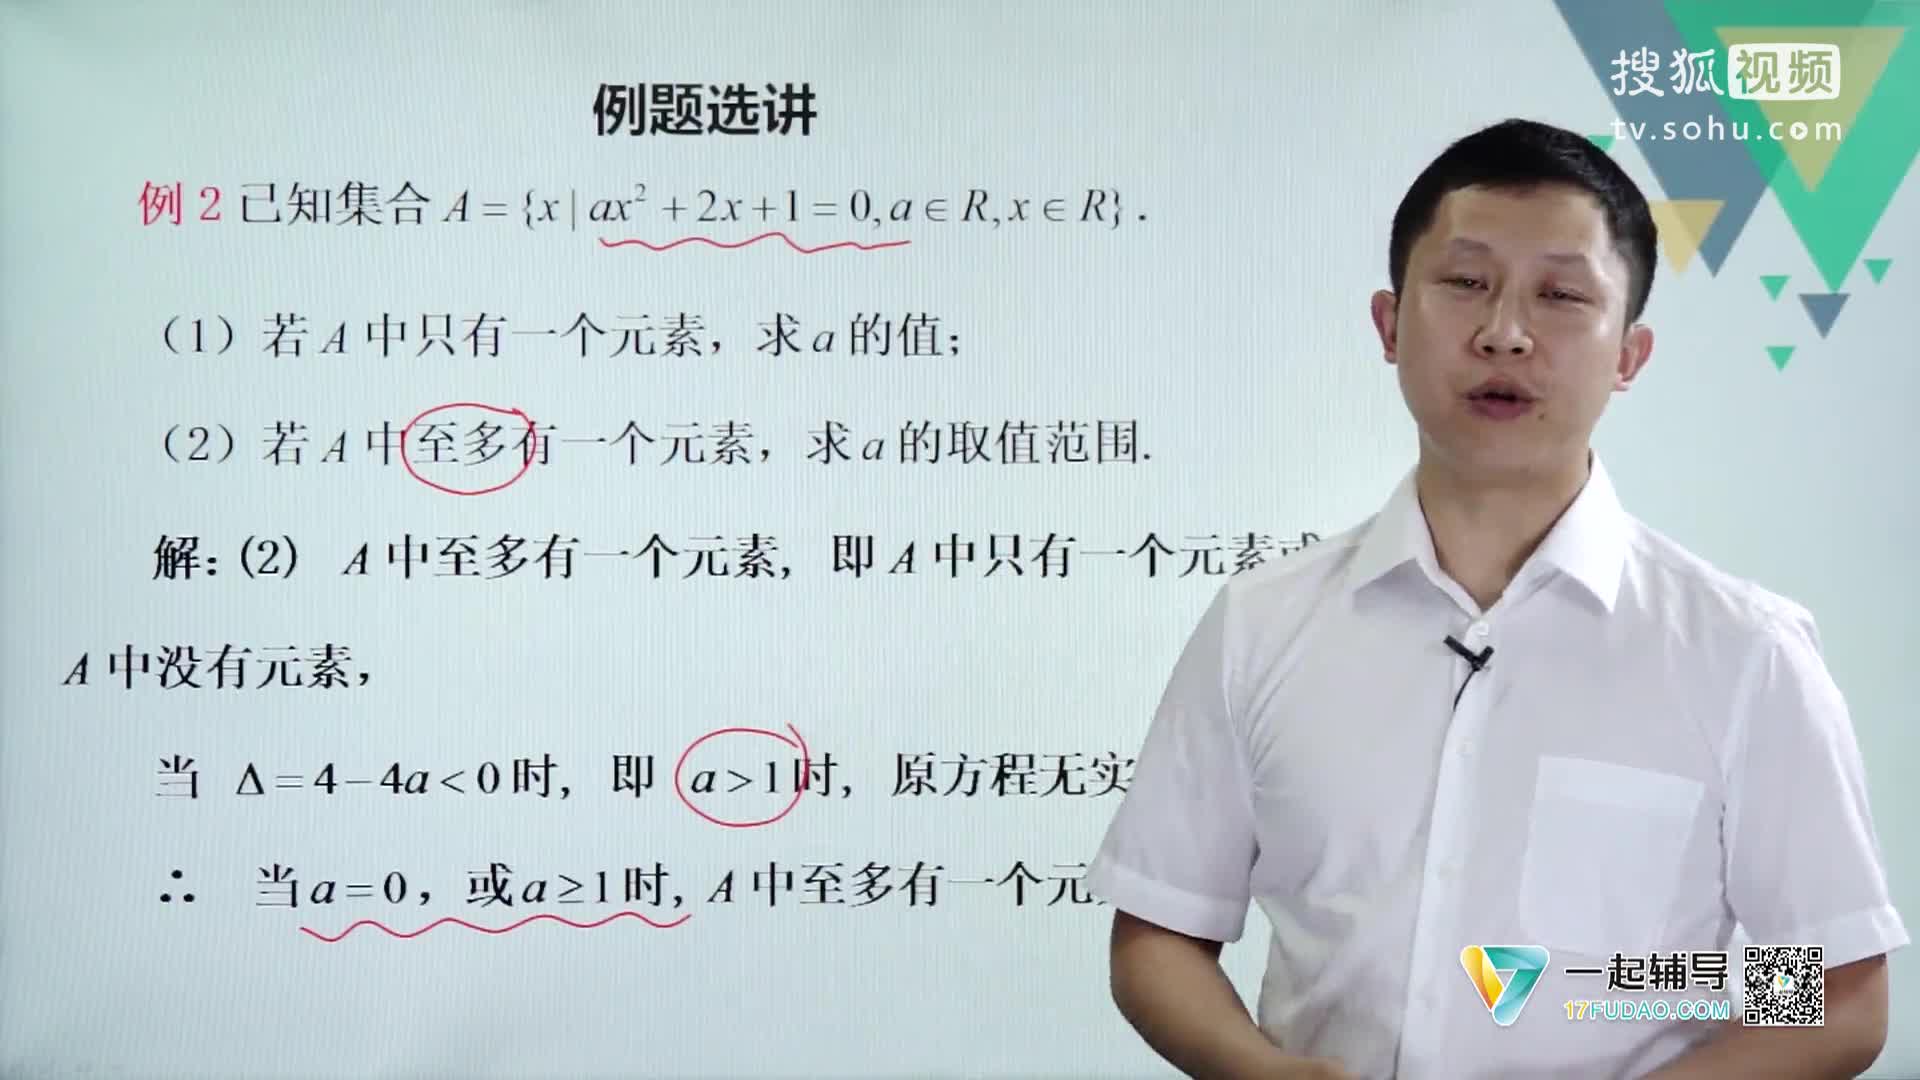 搜狐视频
tv.sohu.com
例题选讲
例 2 已知集合 A = {x | ax² + 2x + 1 = 0, a ∈ R, x ∈ R} .
（1）若 A 中只有一个元素，求 a 的值；
（2）若 A 中至多有一个元素，求 a 的取值范围.
解：(2) A 中至多有一个元素，即 A 中只有一个元素或
A 中没有元素，
当 Δ = 4 − 4a < 0 时，即 a > 1 时，原方程无实
∴ 当 a = 0，或 a ≥ 1 时, A 中至多有一个元
一起辅导
17FUDAO.COM